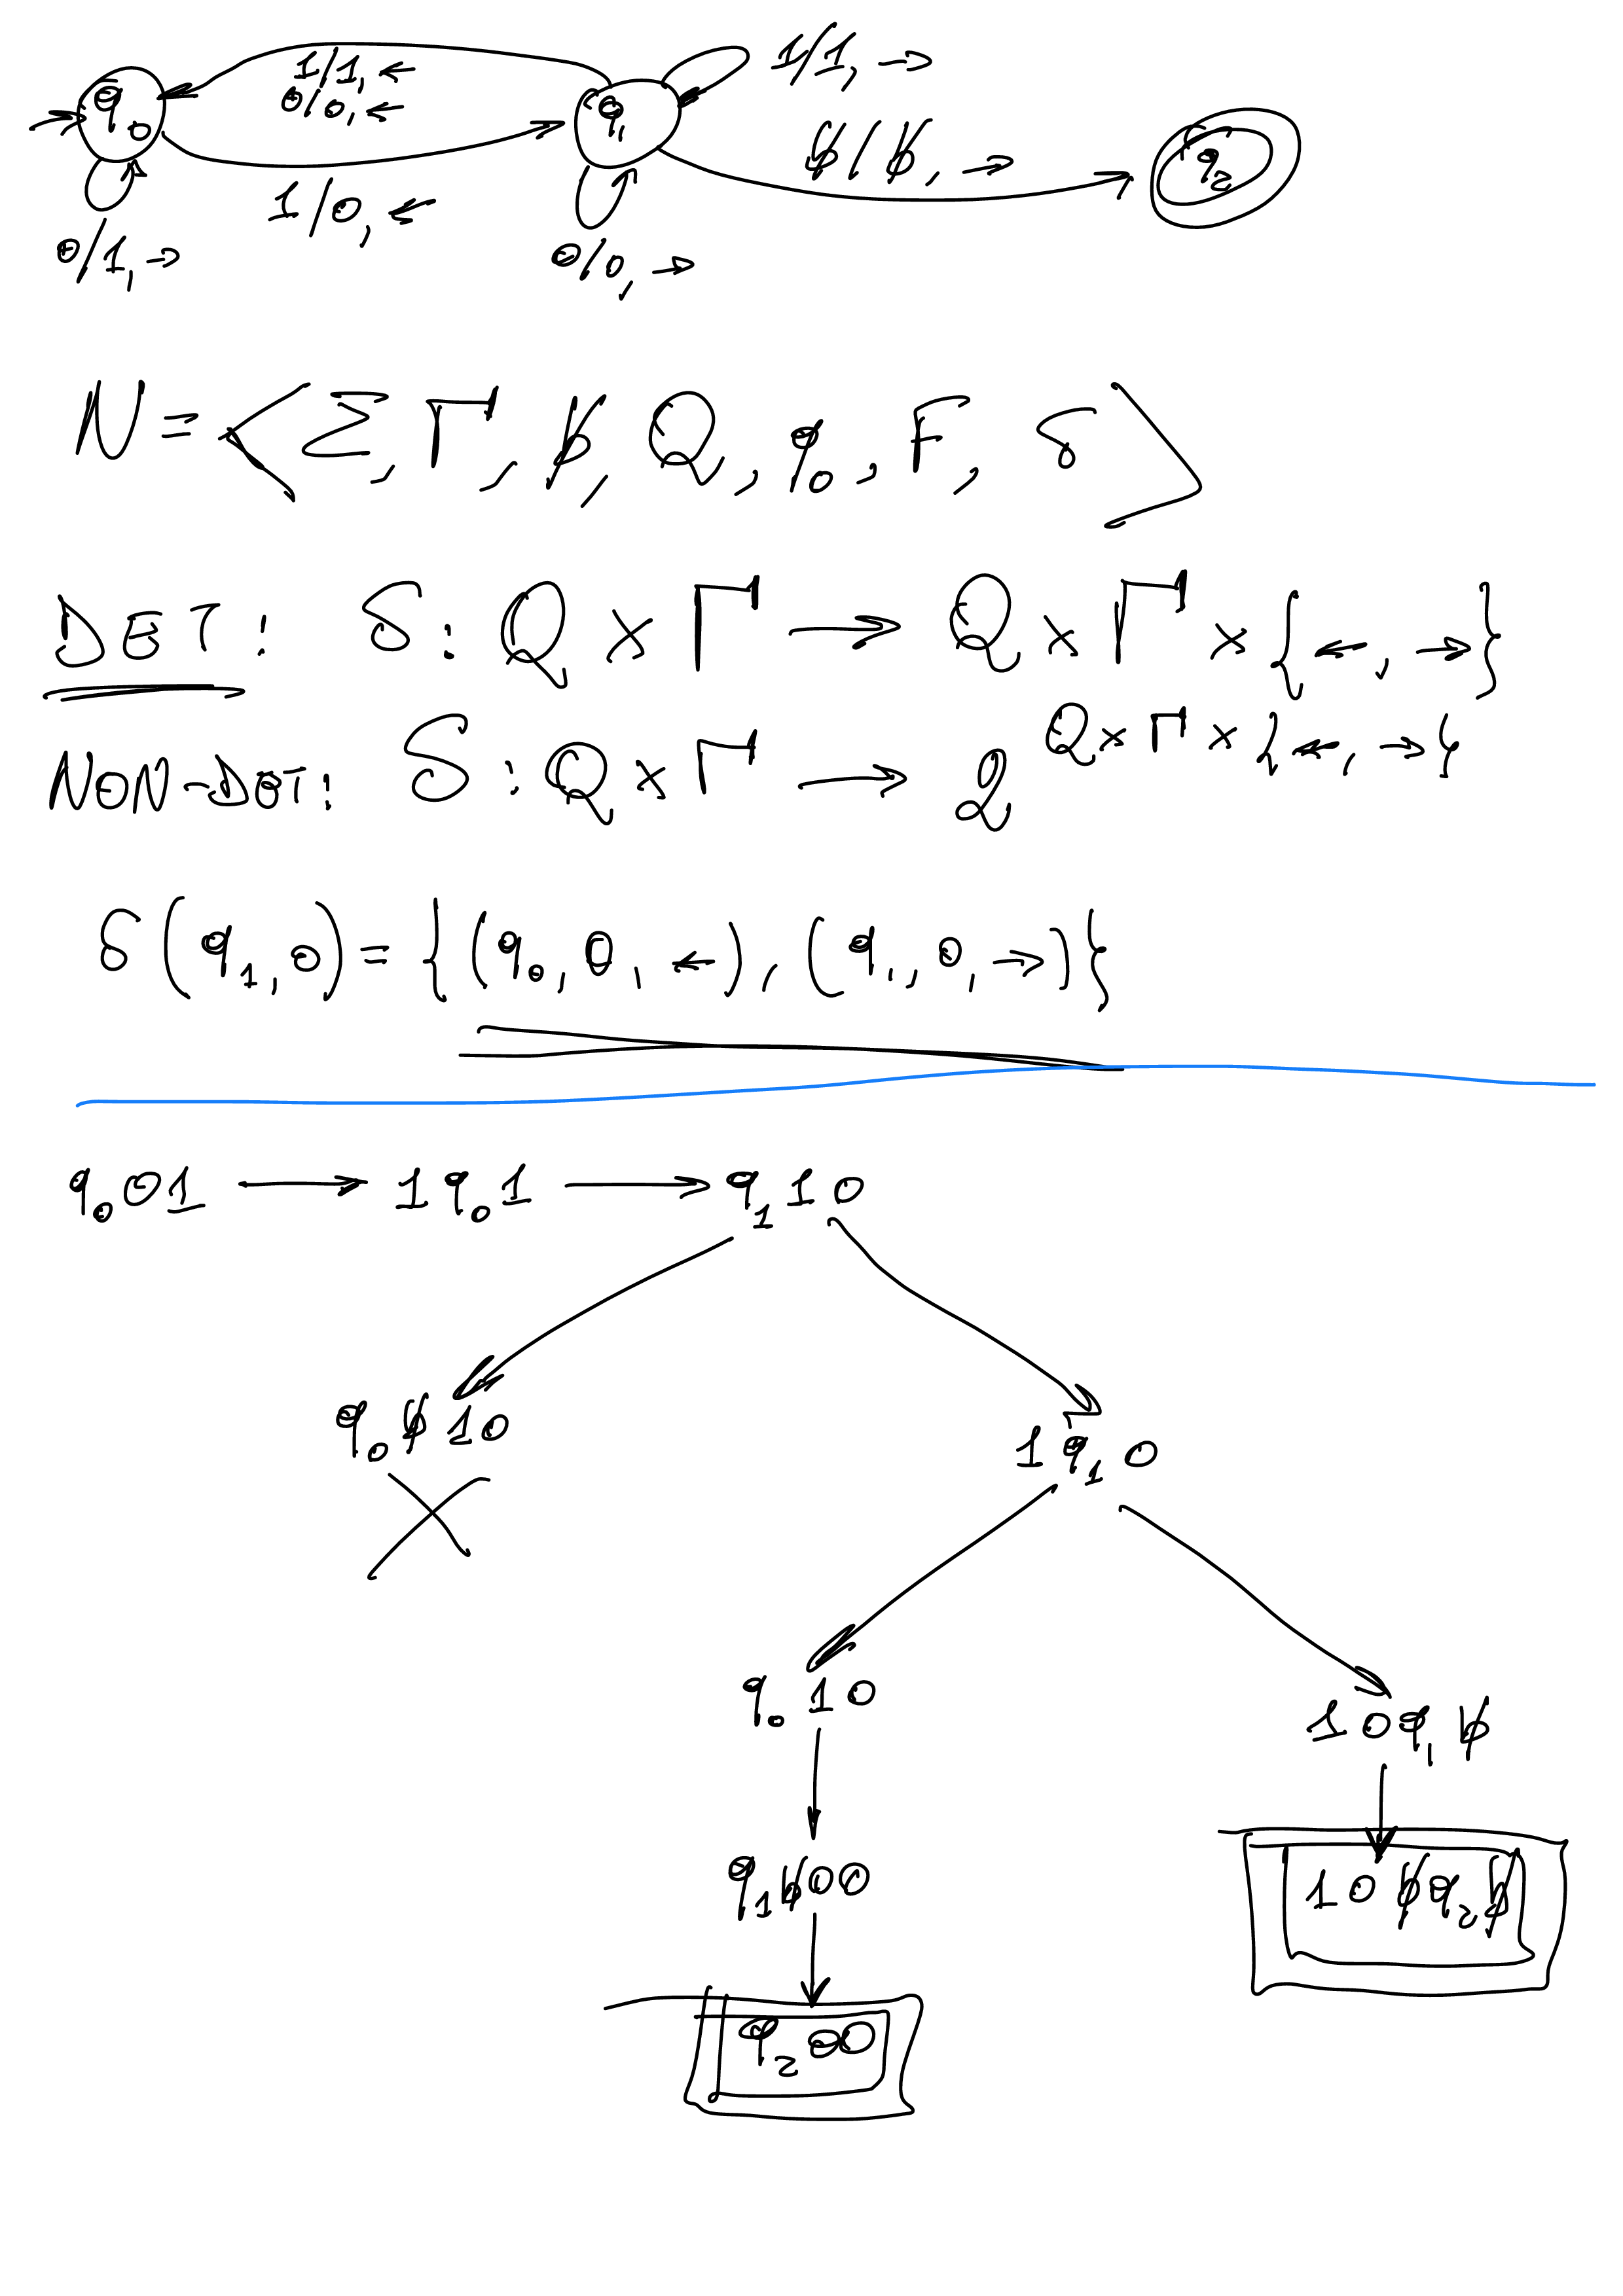 1/1, ←
1/1, →
q₀
0/0, ←
q₁
ƀ/ƀ, →
q₂
1/0, ←
0/1, →
0/0, →
N = ⟨Σ, Γ, ƀ, Q, q₀, F, δ⟩
DET: δ: Q × Γ → Q × Γ × {←, →}
NON-DET: δ: Q × Γ → 2^{Q × Γ × {←, →}}
δ(q₁, 0) = {(q₀, 0, ←), (q₁, 0, →)}
q₀01 → 1q₀1 → q₁10
q₀ƀ10
1q₁0
q₀10
10q₁ƀ
q₁ƀ00
10ƀq₂ƀ
q₂00